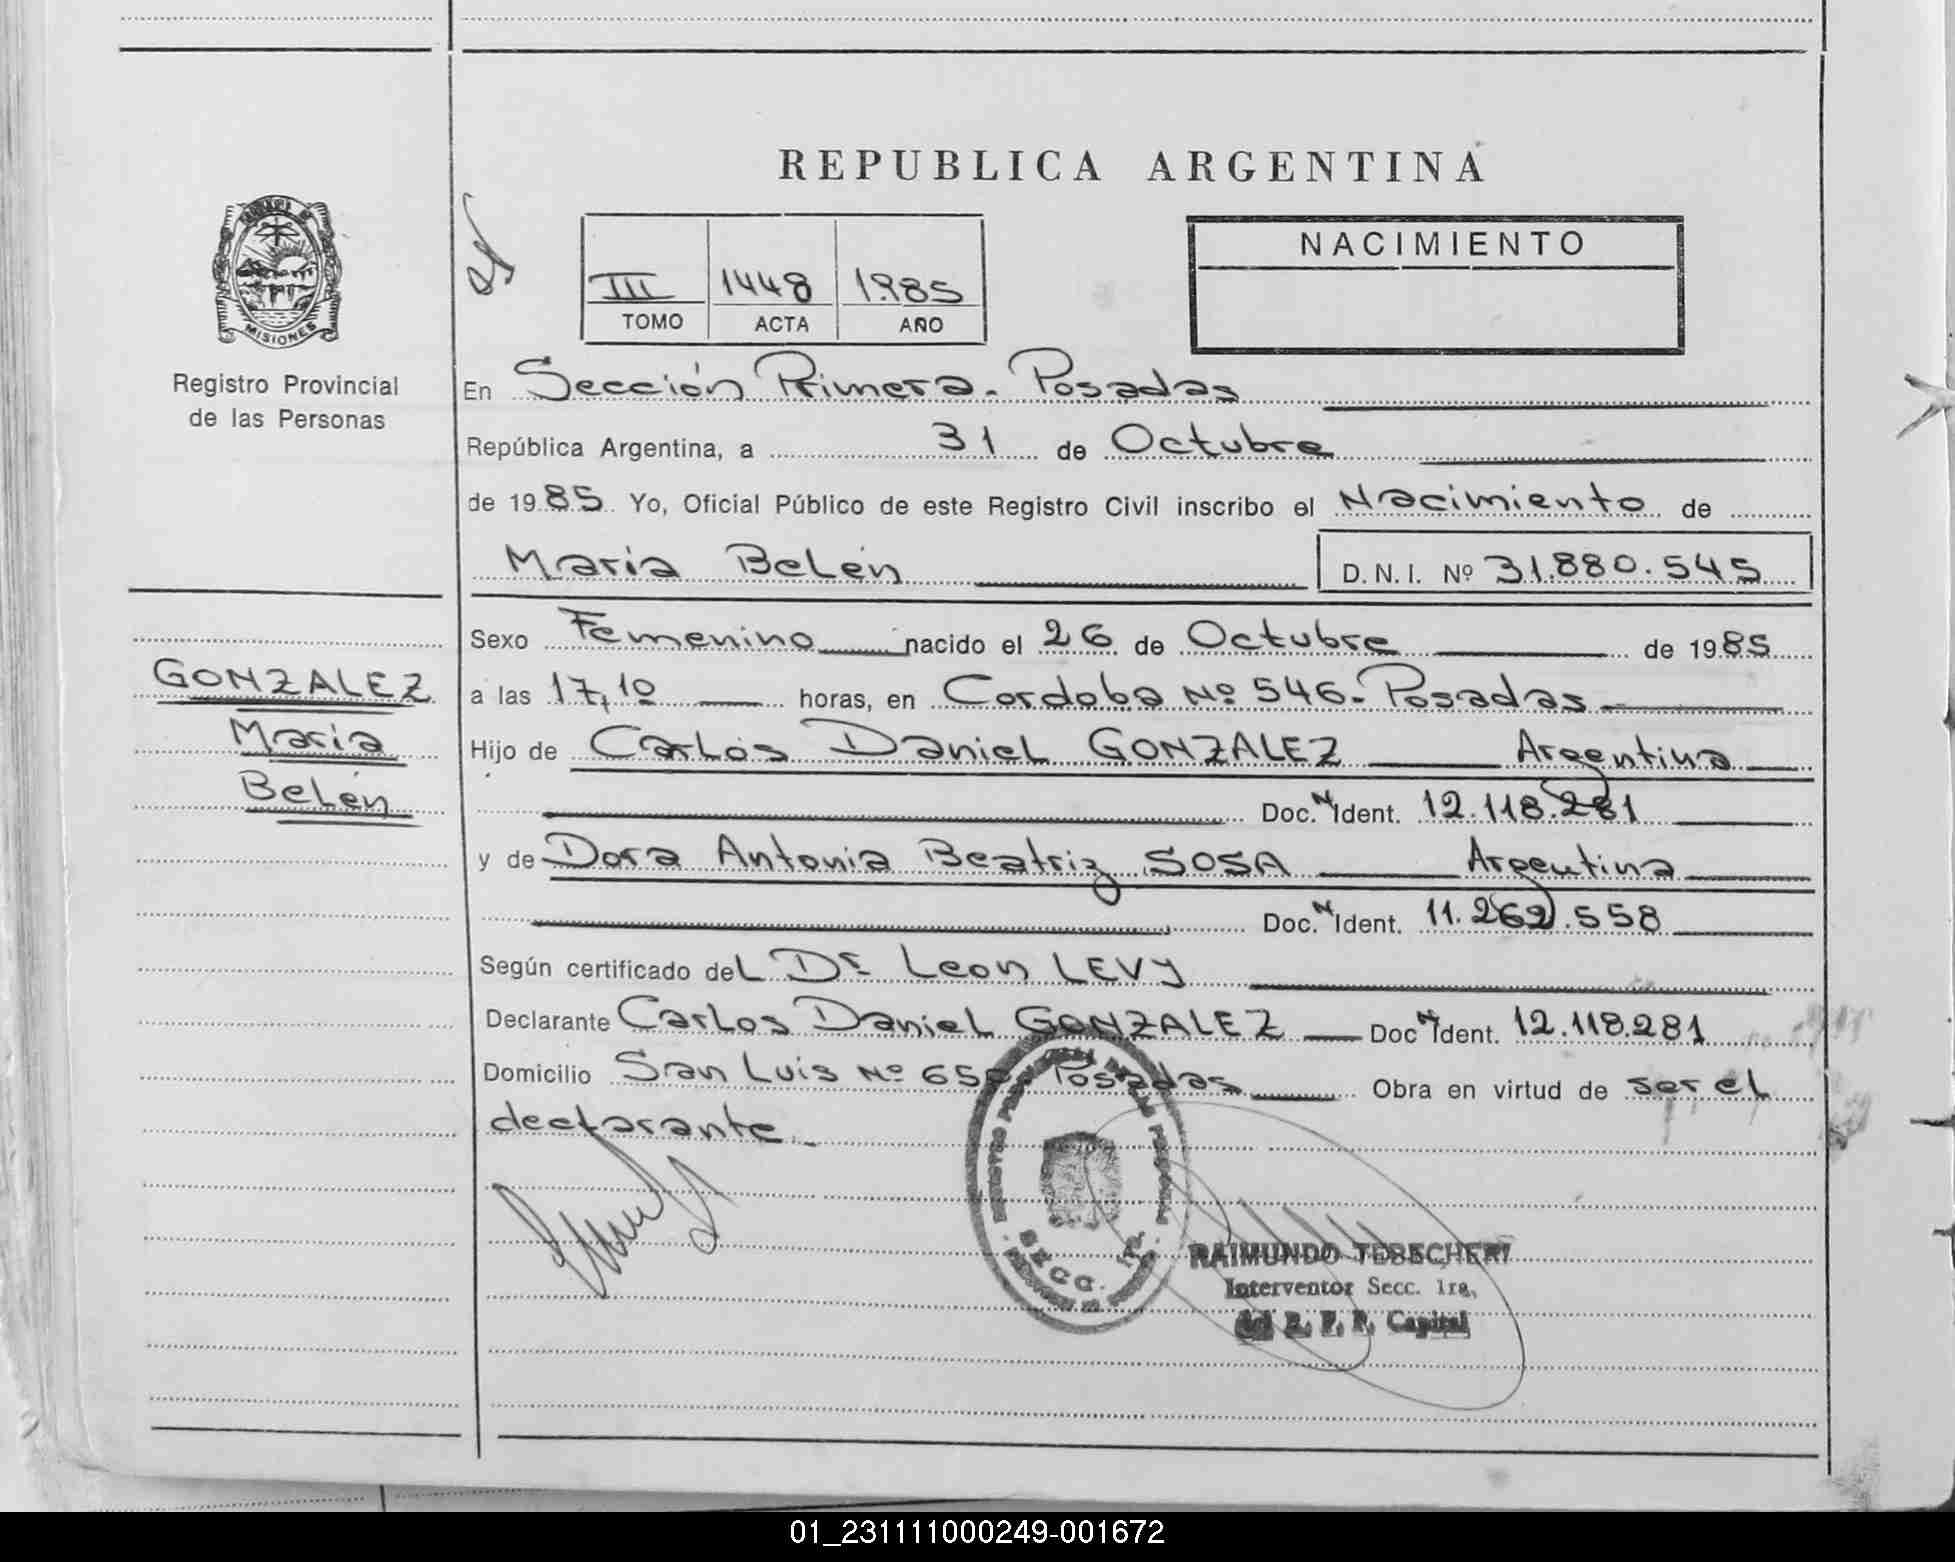 REPUBLICA ARGENTINA
MISIONES
Registro Provincial
de las Personas
III 1448 1985
TOMO ACTA AÑO
NACIMIENTO
En Sección Primera. Posadas
República Argentina, a 31 de Octubre
de 1985 Yo, Oficial Público de este Registro Civil inscribo el Nacimiento de
María Belén D.N.I. Nº 31.880.545
Sexo Femenino nacido el 26 de Octubre de 1985
GONZALEZ
María
Belén
a las 17,10 horas, en Cordoba Nº 546. Posadas
Hijo de Carlos Daniel GONZALEZ Argentina
Doc. N Ident. 12.118.281
y de Dora Antonia Beatriz SOSA Argentina
Doc. N Ident. 11.262.558
Según certificado del Dr Leon LEVY
Declarante Carlos Daniel GONZALEZ Doc N Ident. 12.118.281
Domicilio San Luis Nº Posadas Obra en virtud de ser el
declarante.
SECC. 1ra.
RAIMUNDO
Interventor Secc. 1ra,
del R. P. P. Capital
01_231111000249-001672